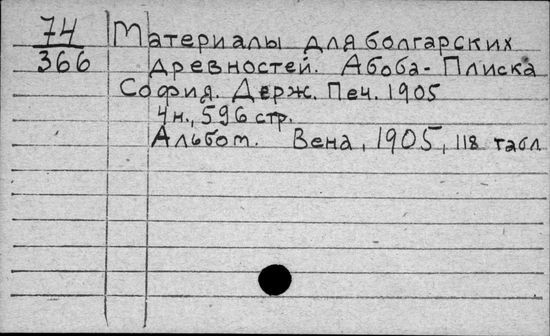 74 Материалы для болгарских
366 древностей. Абоба-Плиска
София. Держ. Печ. 1905
4н., 596 стр.
Альбом. Вена, 1905, 118 табл